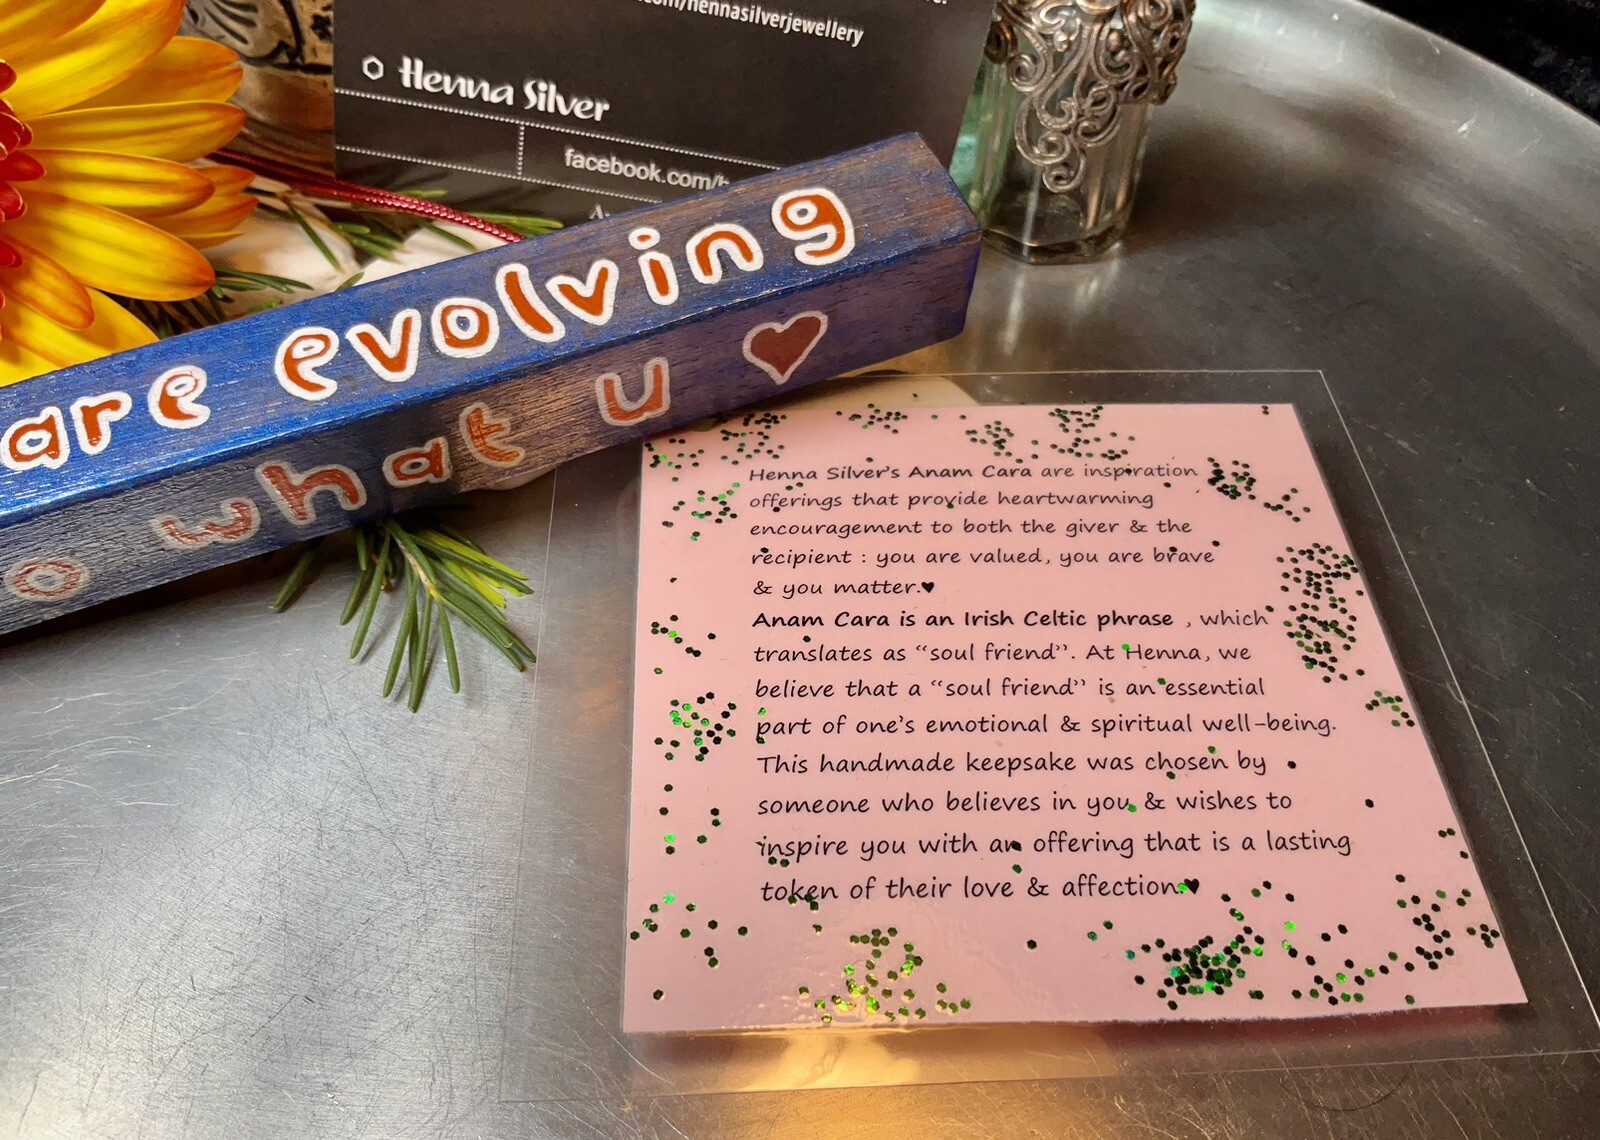 /hennasilverjewellery
Henna Silver
facebook.com/h
are evolving
o what u ♥
Henna Silver's Anam Cara are inspiration
offerings that provide heartwarming
encouragement to both the giver & the
recipient : you are valued, you are brave
& you matter.♥
Anam Cara is an Irish Celtic phrase , which
translates as “soul friend”. At Henna, we
believe that a “soul friend” is an essential
part of one's emotional & spiritual well-being.
This handmade keepsake was chosen by
someone who believes in you & wishes to
inspire you with an offering that is a lasting
token of their love & affection.♥